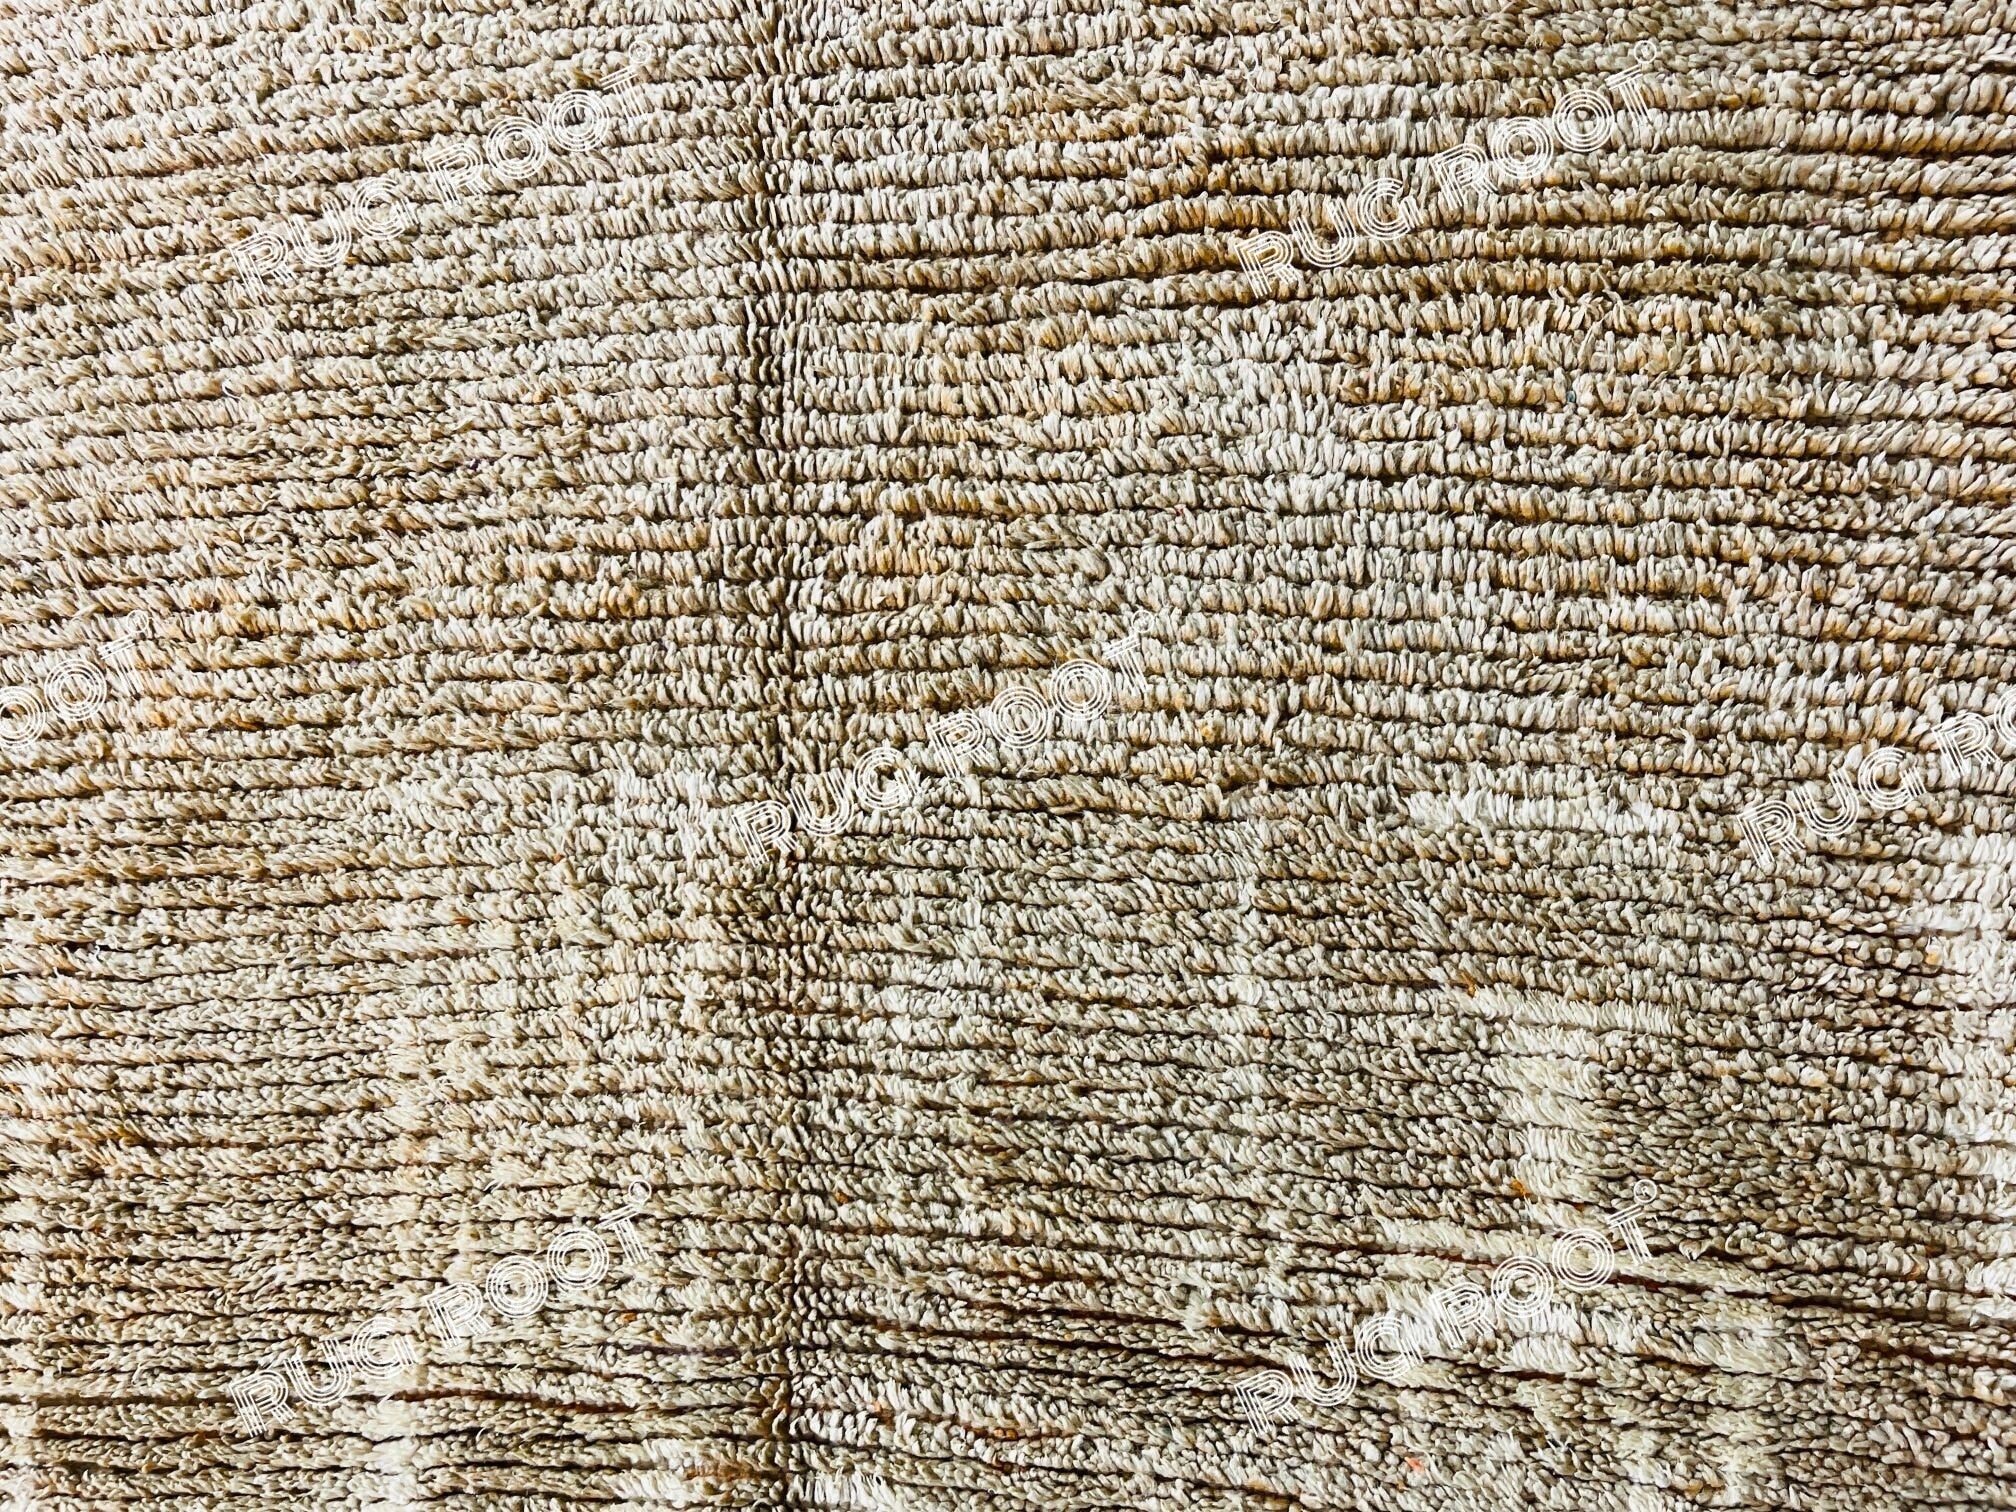 RUG ROOT®
RUG ROOT®
OOT®
RUG ROOT®
RUG RO
RUG ROOT®
RUG ROOT®